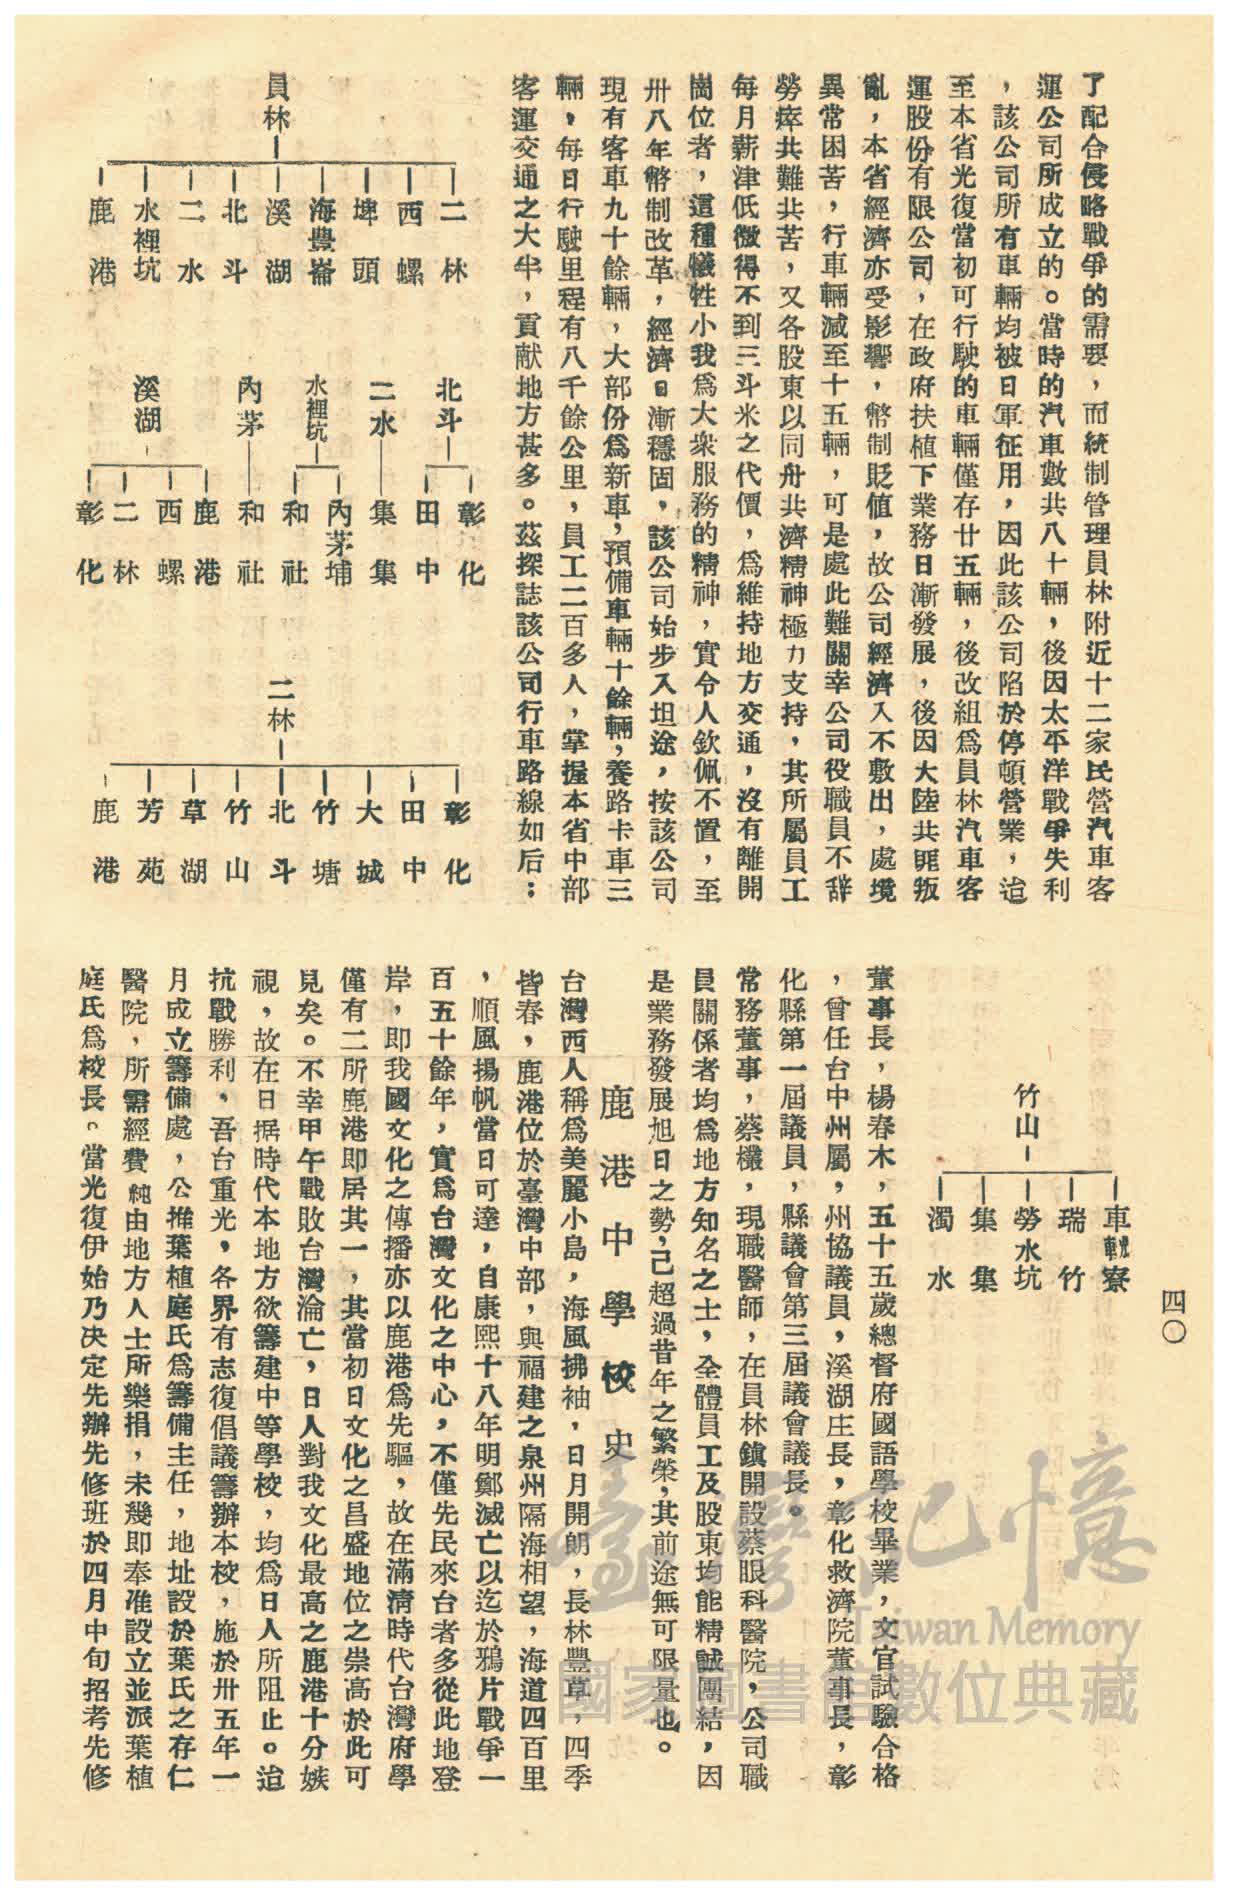 了配合侵略戰爭的需要，而統制管理員林附近十二家民營汽車客
運公司所成立的。當時的汽車數共八十輛，後因太平洋戰爭失利
，該公司所有車輛均被日軍征用，因此該公司陷於停頓營業，迨
至本省光復當初可行駛的車輛僅存廿五輛，後改組爲員林汽車客
運股份有限公司，在政府扶植下業務日漸發展，後因大陸共匪叛
亂，本省經濟亦受影響，幣制貶值，故公司經濟入不敷出，處境
異常困苦，行車輛減至十五輛，可是處此難關幸公司役職員不辞
勞瘁共難共苦，又各股東以同舟共濟精神極力支持，其所屬員工
每月薪津低微得不到三斗米之代價，爲維持地方交通，沒有離開
崗位者，這種犠牲小我爲大衆服務的精神，實令人欽佩不置，至
卅八年幣制改革，經濟日漸穩固，該公司始步入坦途，按該公司
現有客車九十餘輛，大部份爲新車，預備車輛十餘輛，養路卡車三
輛，每日行駛里程有八千餘公里，員工二百多人，掌握本省中部
客運交通之大半，貢献地方甚多。茲探誌該公司行車路線如后：
員林
二林
西螺
埤頭
海豐崙
溪湖
北斗
二水
水裡坑
鹿港
北斗
彰化
田中
二水
集集
水裡坑
內茅埔
和社
內茅
和社
溪湖
鹿港
西螺
二林
彰化
二林
彰化
田中
大城
竹塘
北斗
竹山
草湖
芳苑
鹿港
四〇
竹山
車輄寮
瑞竹
勞水坑
集集
濁水
董事長，楊春木，五十五歲總督府國語學校畢業，文官試驗合格
，曾任台中州屬，州協議員，溪湖庄長，彰化救濟院董事長，彰
化縣第一屆議員，縣議會第三屆議會議長。
常務董事，蔡櫼，現職醫師，在員林鎮開設蔡眼科醫院，公司職
員關係者均爲地方知名之士，全體員工及股東均能精誠團結，因
是業務發展旭日之勢，己超過昔年之繁榮，其前途無可限量也。
鹿港中學校史
台灣西人稱爲美麗小島，海風拂袖，日月開朗，長林豐草，四季
皆春，鹿港位於臺灣中部，與福建之泉州隔海相望，海道四百里
，順風揚帆當日可達，自康熙十八年明鄭滅亡以迄於鴉片戰爭一
百五十餘年，實爲台灣文化之中心，不僅先民來台者多從此地登
岸，即我國文化之傳播亦以鹿港爲先驅，故在滿清時代台灣府學
僅有二所鹿港即居其一，其當初日文化之昌盛地位之崇高於此可
見矣。不幸甲午戰敗台灣淪亡，日人對我文化最高之鹿港十分嫉
視，故在日据時代本地方欲籌建中等學校，均爲日人所阻止。迨
抗戰勝利，吾台重光，各界有志復倡議籌辦本校，施於卅五年一
月成立籌備處，公推葉植庭氏爲籌備主任，地址設於葉氏之存仁
醫院，所需經費純由地方人士所樂捐，未幾即奉准設立並派葉植
庭氏爲校長。當光復伊始乃決定先辦先修班於四月中旬招考先修
臺灣記憶
Taiwan Memory
國家圖書館數位典藏